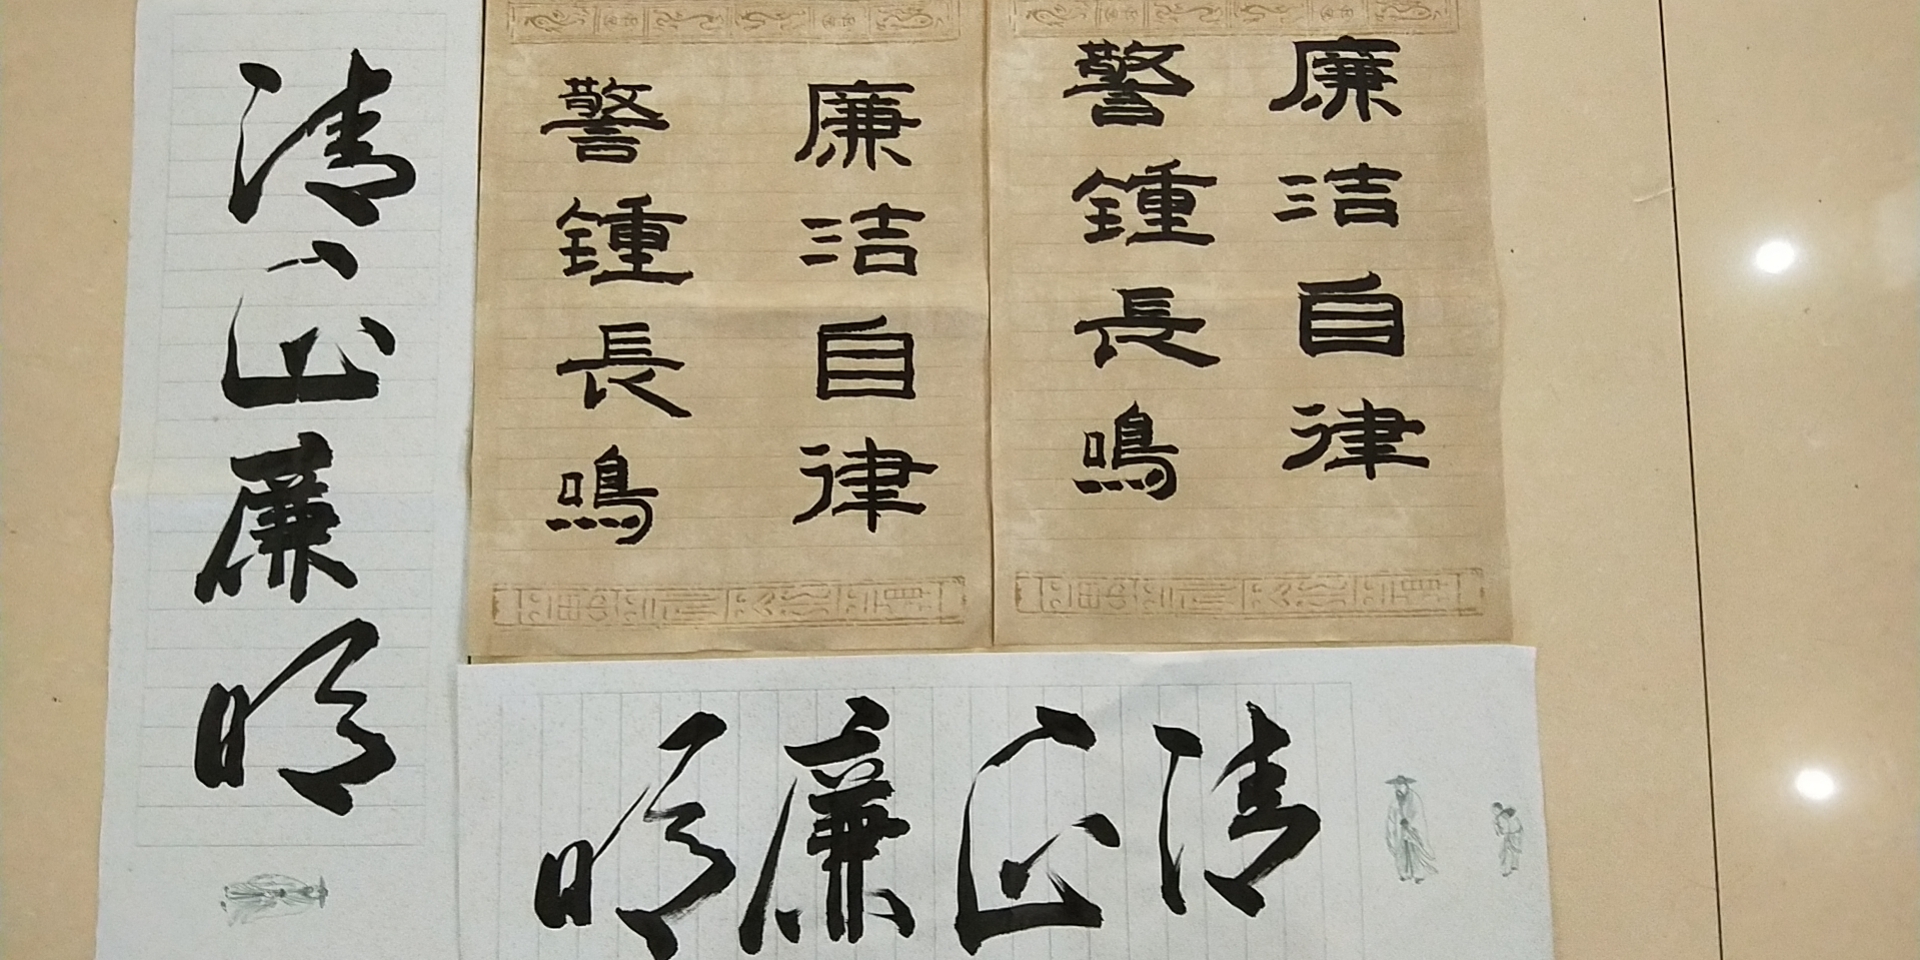 清正廉明
廉洁自律
警鍾長鳴
廉洁自律
警鍾長鳴
清正廉明